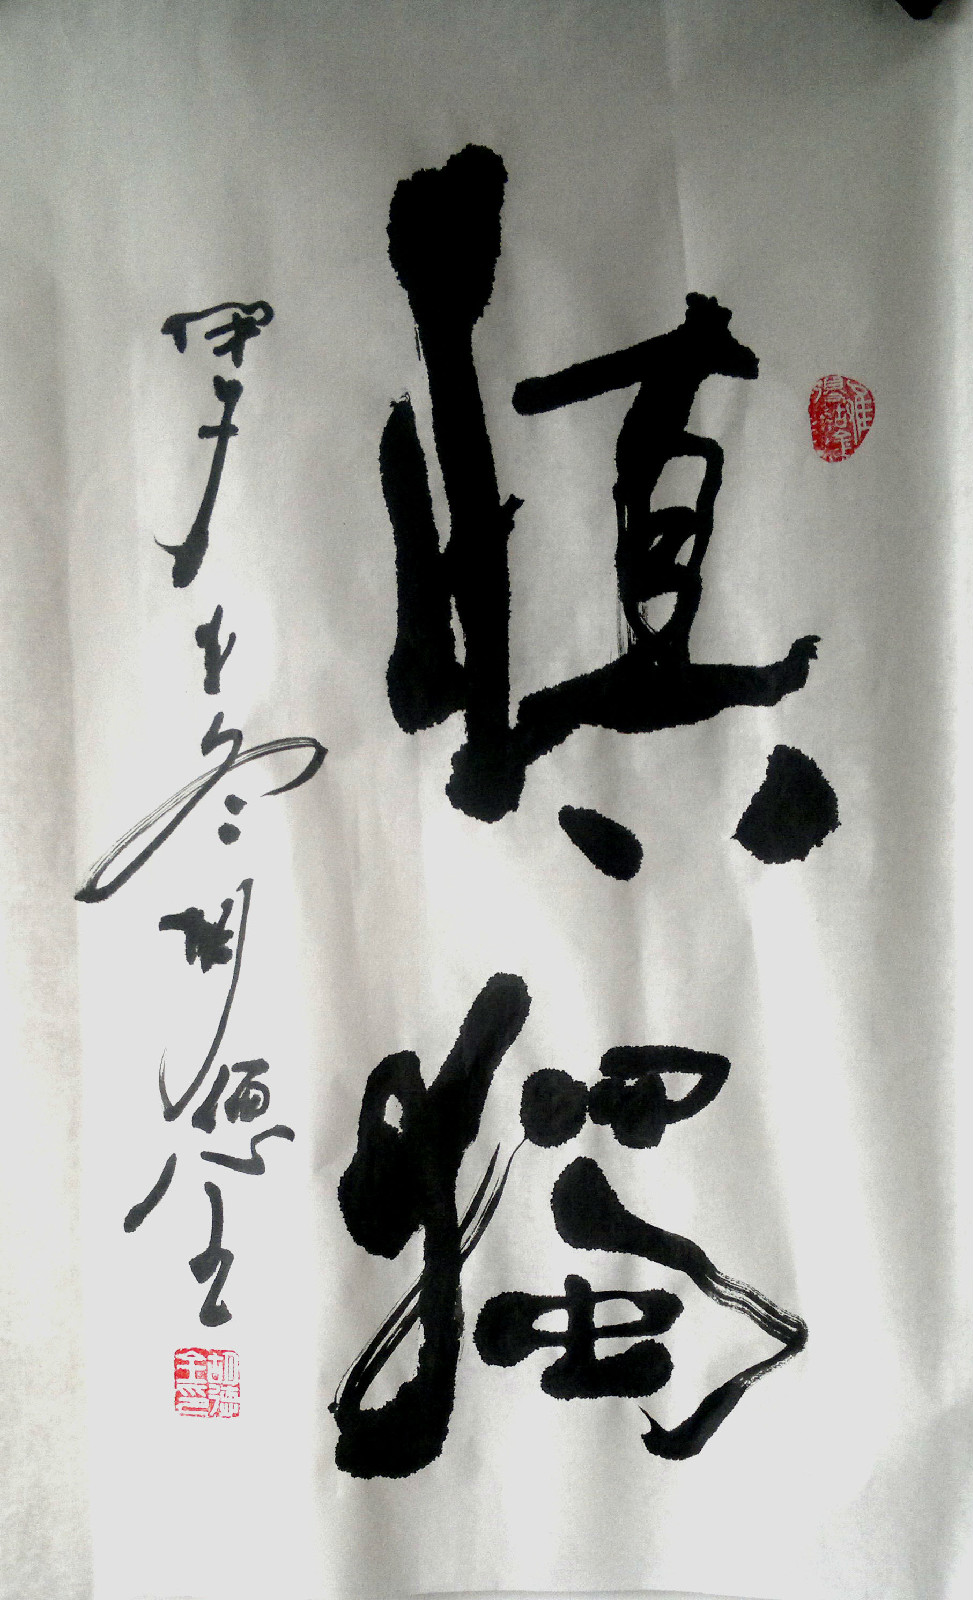 慎獨
甲午冬胡德全
胡德全印